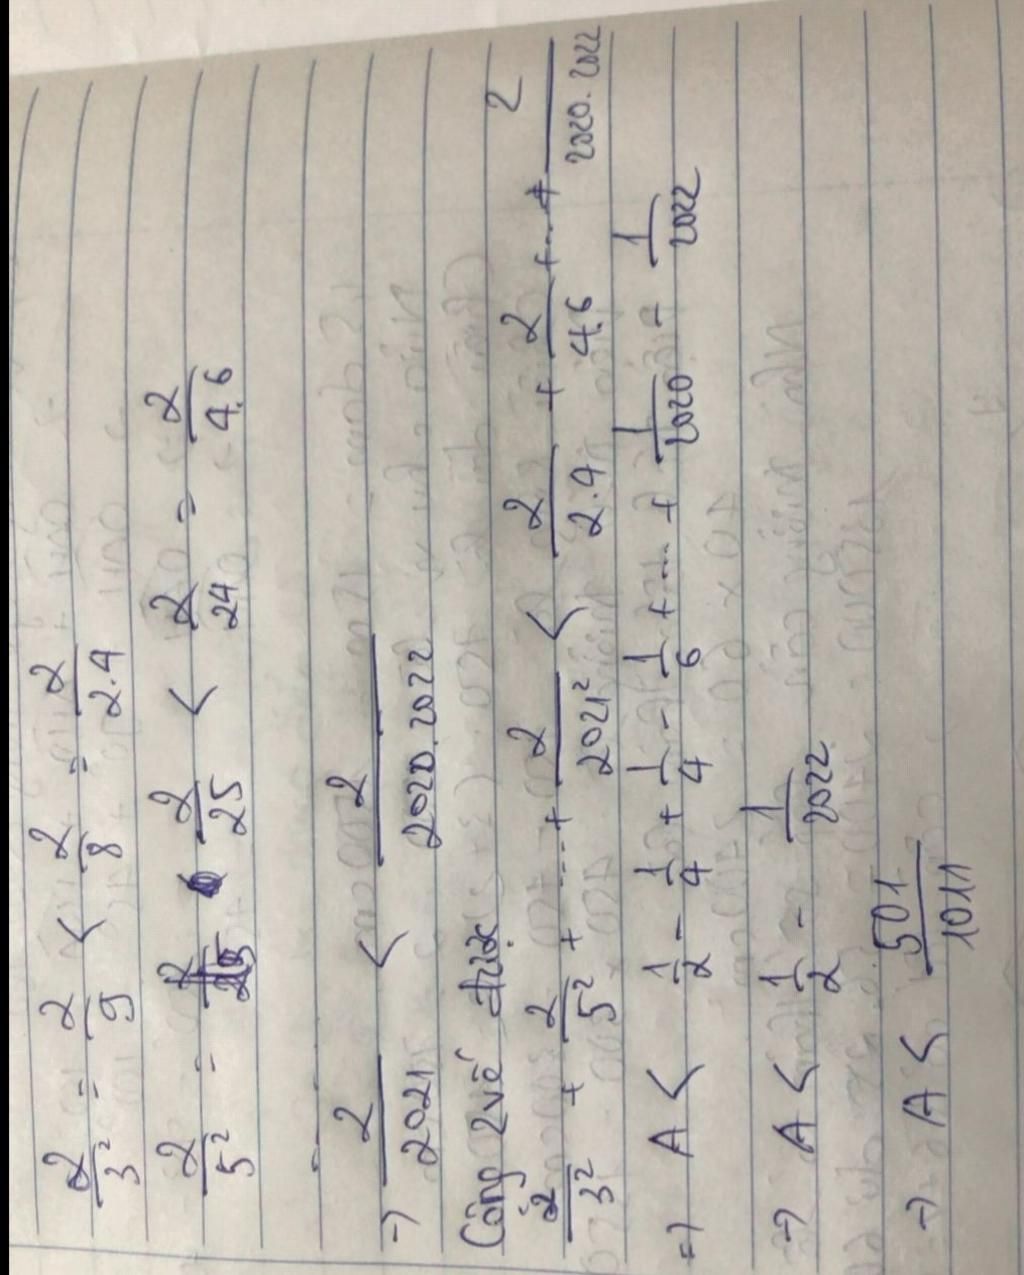 2/3² = 2/9 < 2/8 = 2/2.4
2/5² = 2/25 < 2/24 = 2/4.6
⇒ 2/2021 < 2/2020.2022
Cộng 2 vế được
2/3² + 2/5² + .... + 2/2021² < 2/2.4 + 2/4.6 + ... + 2/2020.2022
⇒ A < 1/2 - 1/4 + 1/4 - 1/6 + .... + 1/2020 - 1/2022
⇒ A < 1/2 - 1/2022
⇒ A < 501/1011